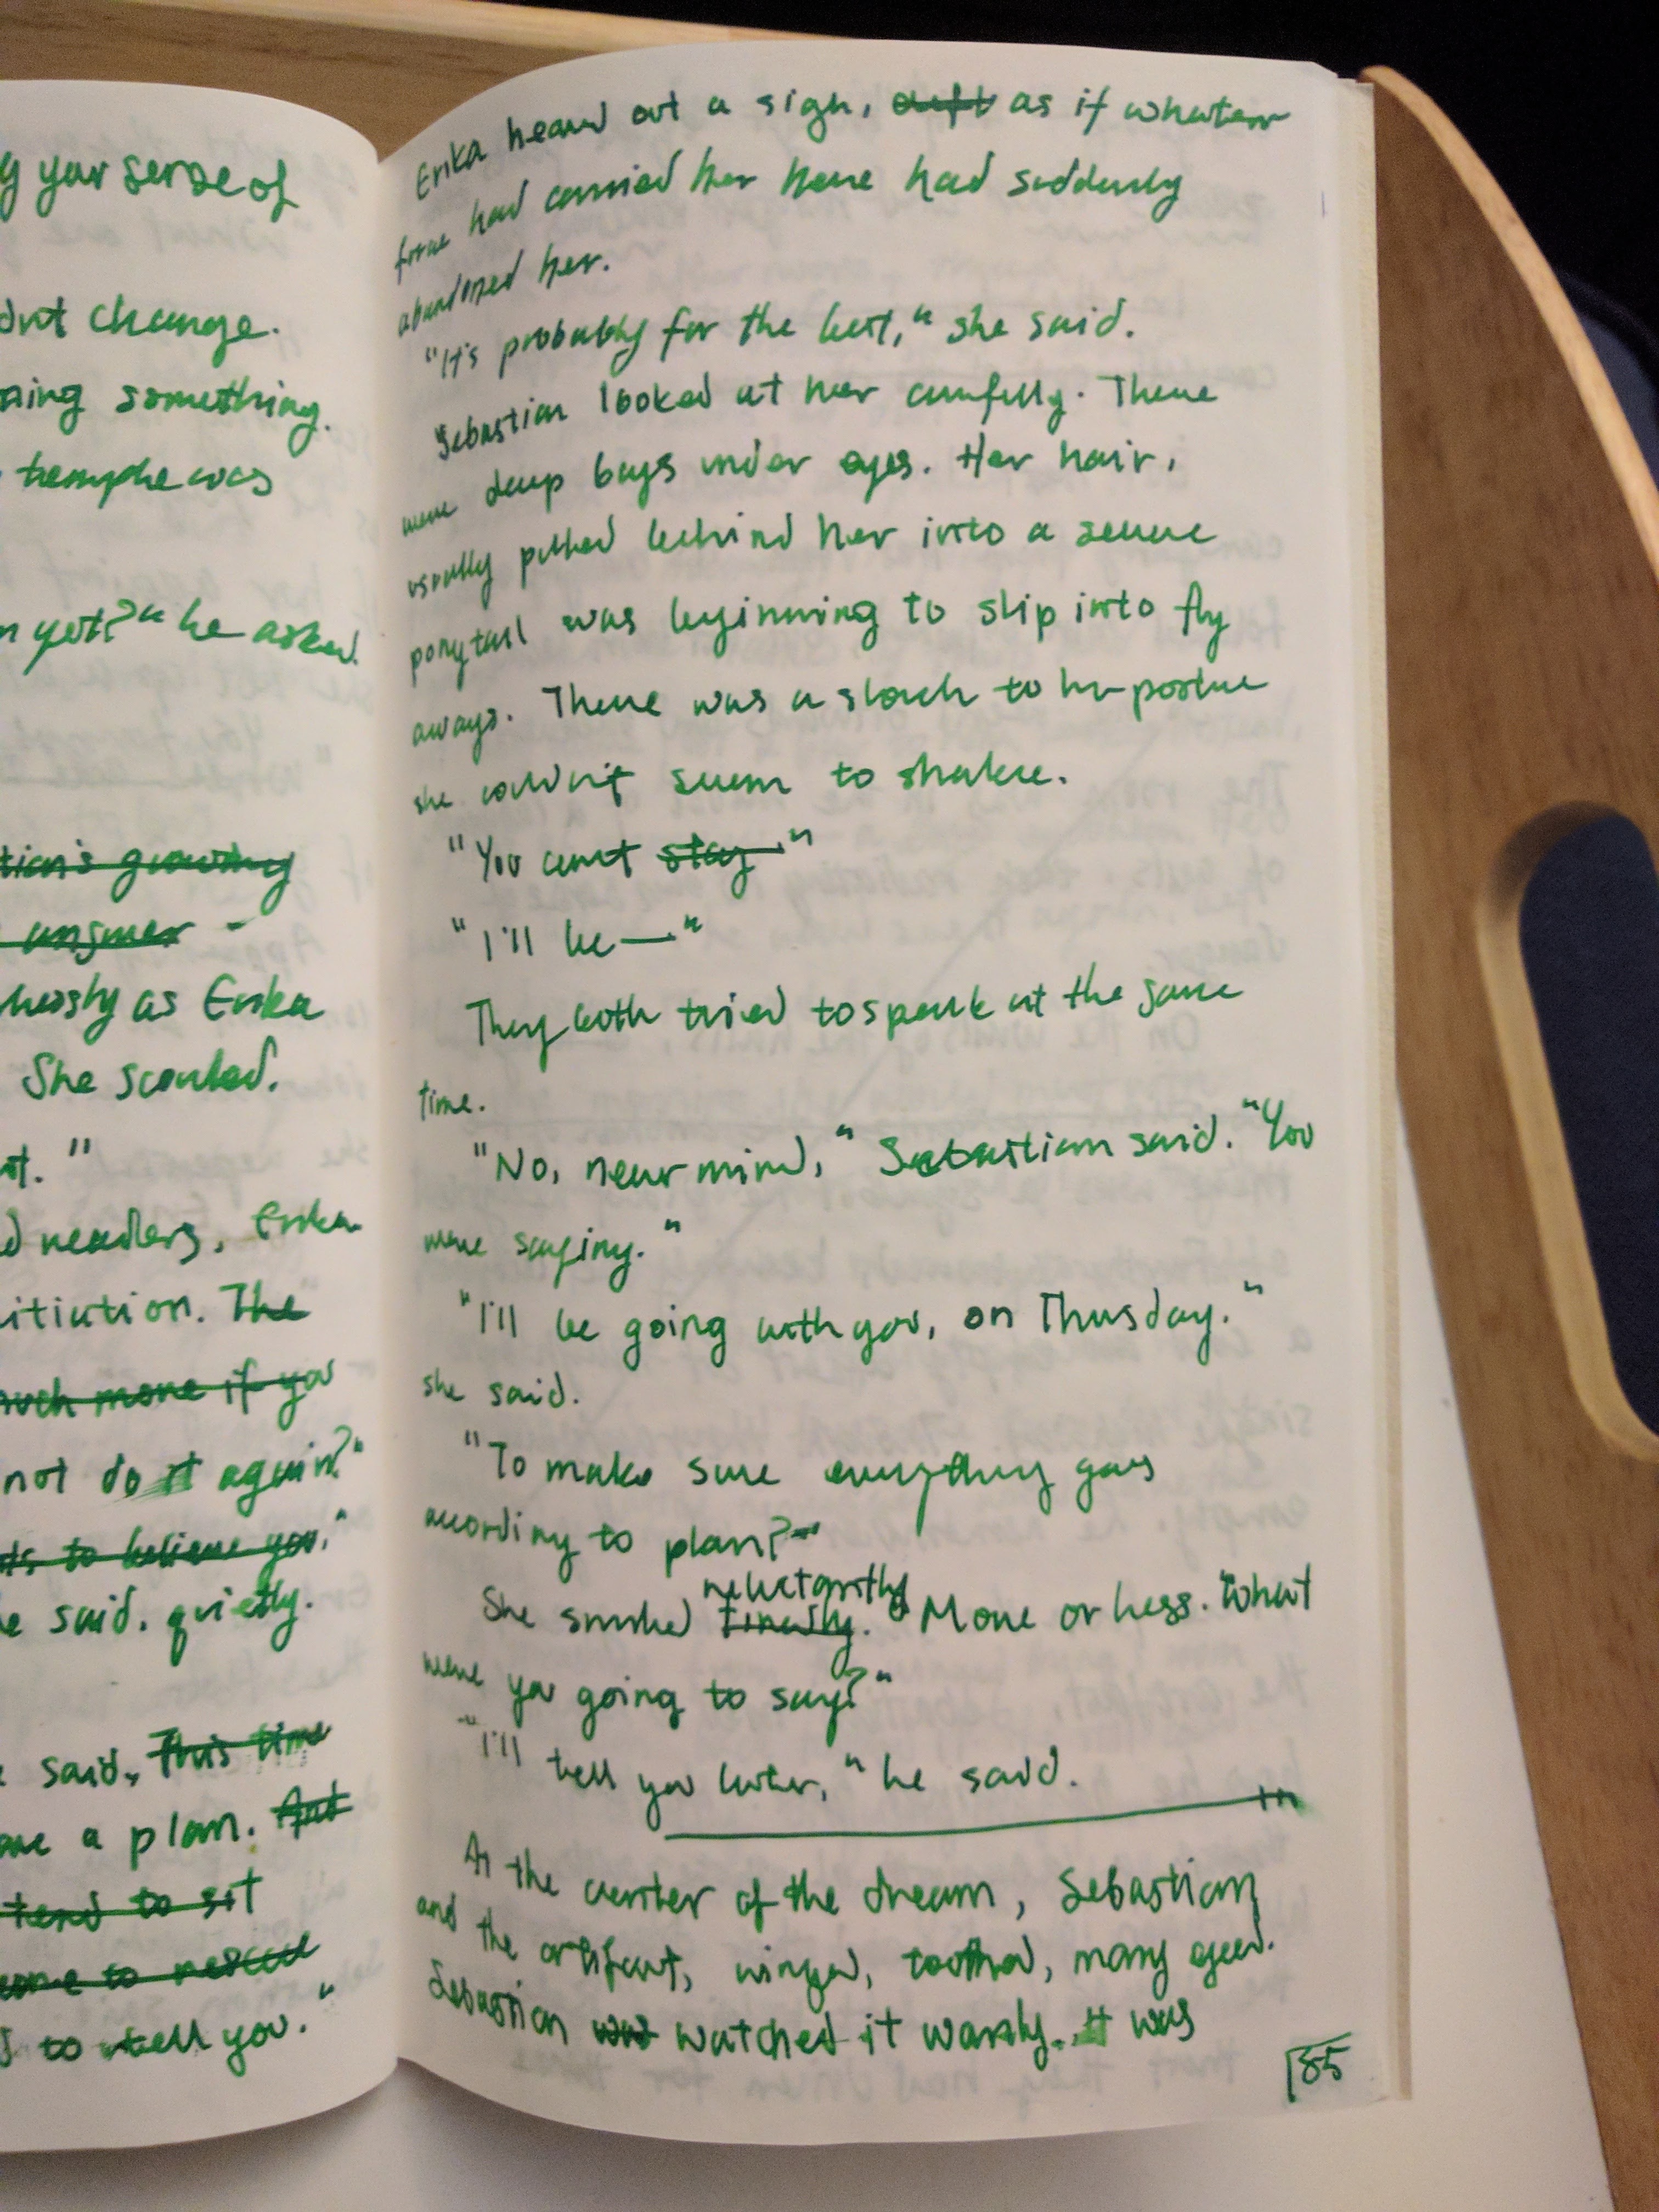 y your sense of
dn't change.
ning something.
temple was
n yet?" he asked.
tian's growing
anger
as Erika
She scowled.
ot."
d readers, Erika
itiution. The
much more if you
not do it again?"
ts to believe you."
e said. quietly.
e said, This time
ave a plan. And
tend to sit
come to rescue
d to tell you."
Erika heaved out a sigh, as if whatever
force had carried her here had suddenly
abandoned her.
"It's probably for the best," she said.
Sebastian looked at her carefully. There
were deep bags under eyes. Her hair,
usually pulled behind her into a severe
ponytail was beginning to slip into fly
aways. There was a slouch to her posture
she couldn't seem to shake.
"You can't stay—"
"I'll be—"
They both tried to speak at the same
time.
"No, never mind," Sebastian said. "You
were saying."
"I'll be going with you, on Thusday."
she said.
"To make sure everything goes
according to plan?"
She smiled finally. reluctantly "More or less. What
were you going to say?"
"I'll tell you later," he said.
In
At the center of the dream, Sebastian
and the artifact, winged, toothed, many eyed.
Sebastian was watched it warily. It was
185